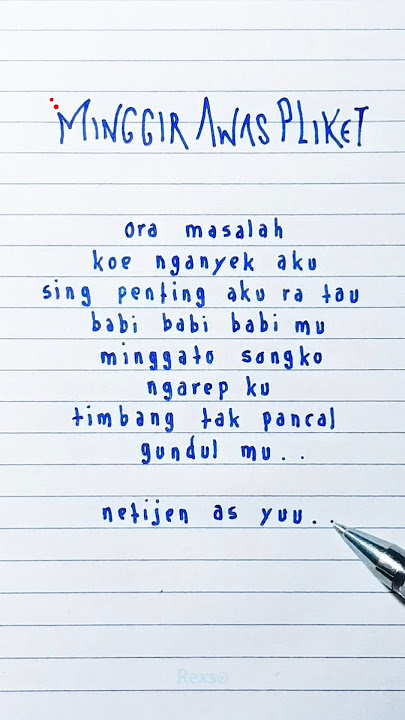 MINGGIR AWAS PLIKET
ora masalah
koe nganyek aku
sing penting aku ra tau
babi babi babi mu
minggato songko
ngarep ku
timbang tak pancal
gundul mu..
netijen as yuu..
Rexso